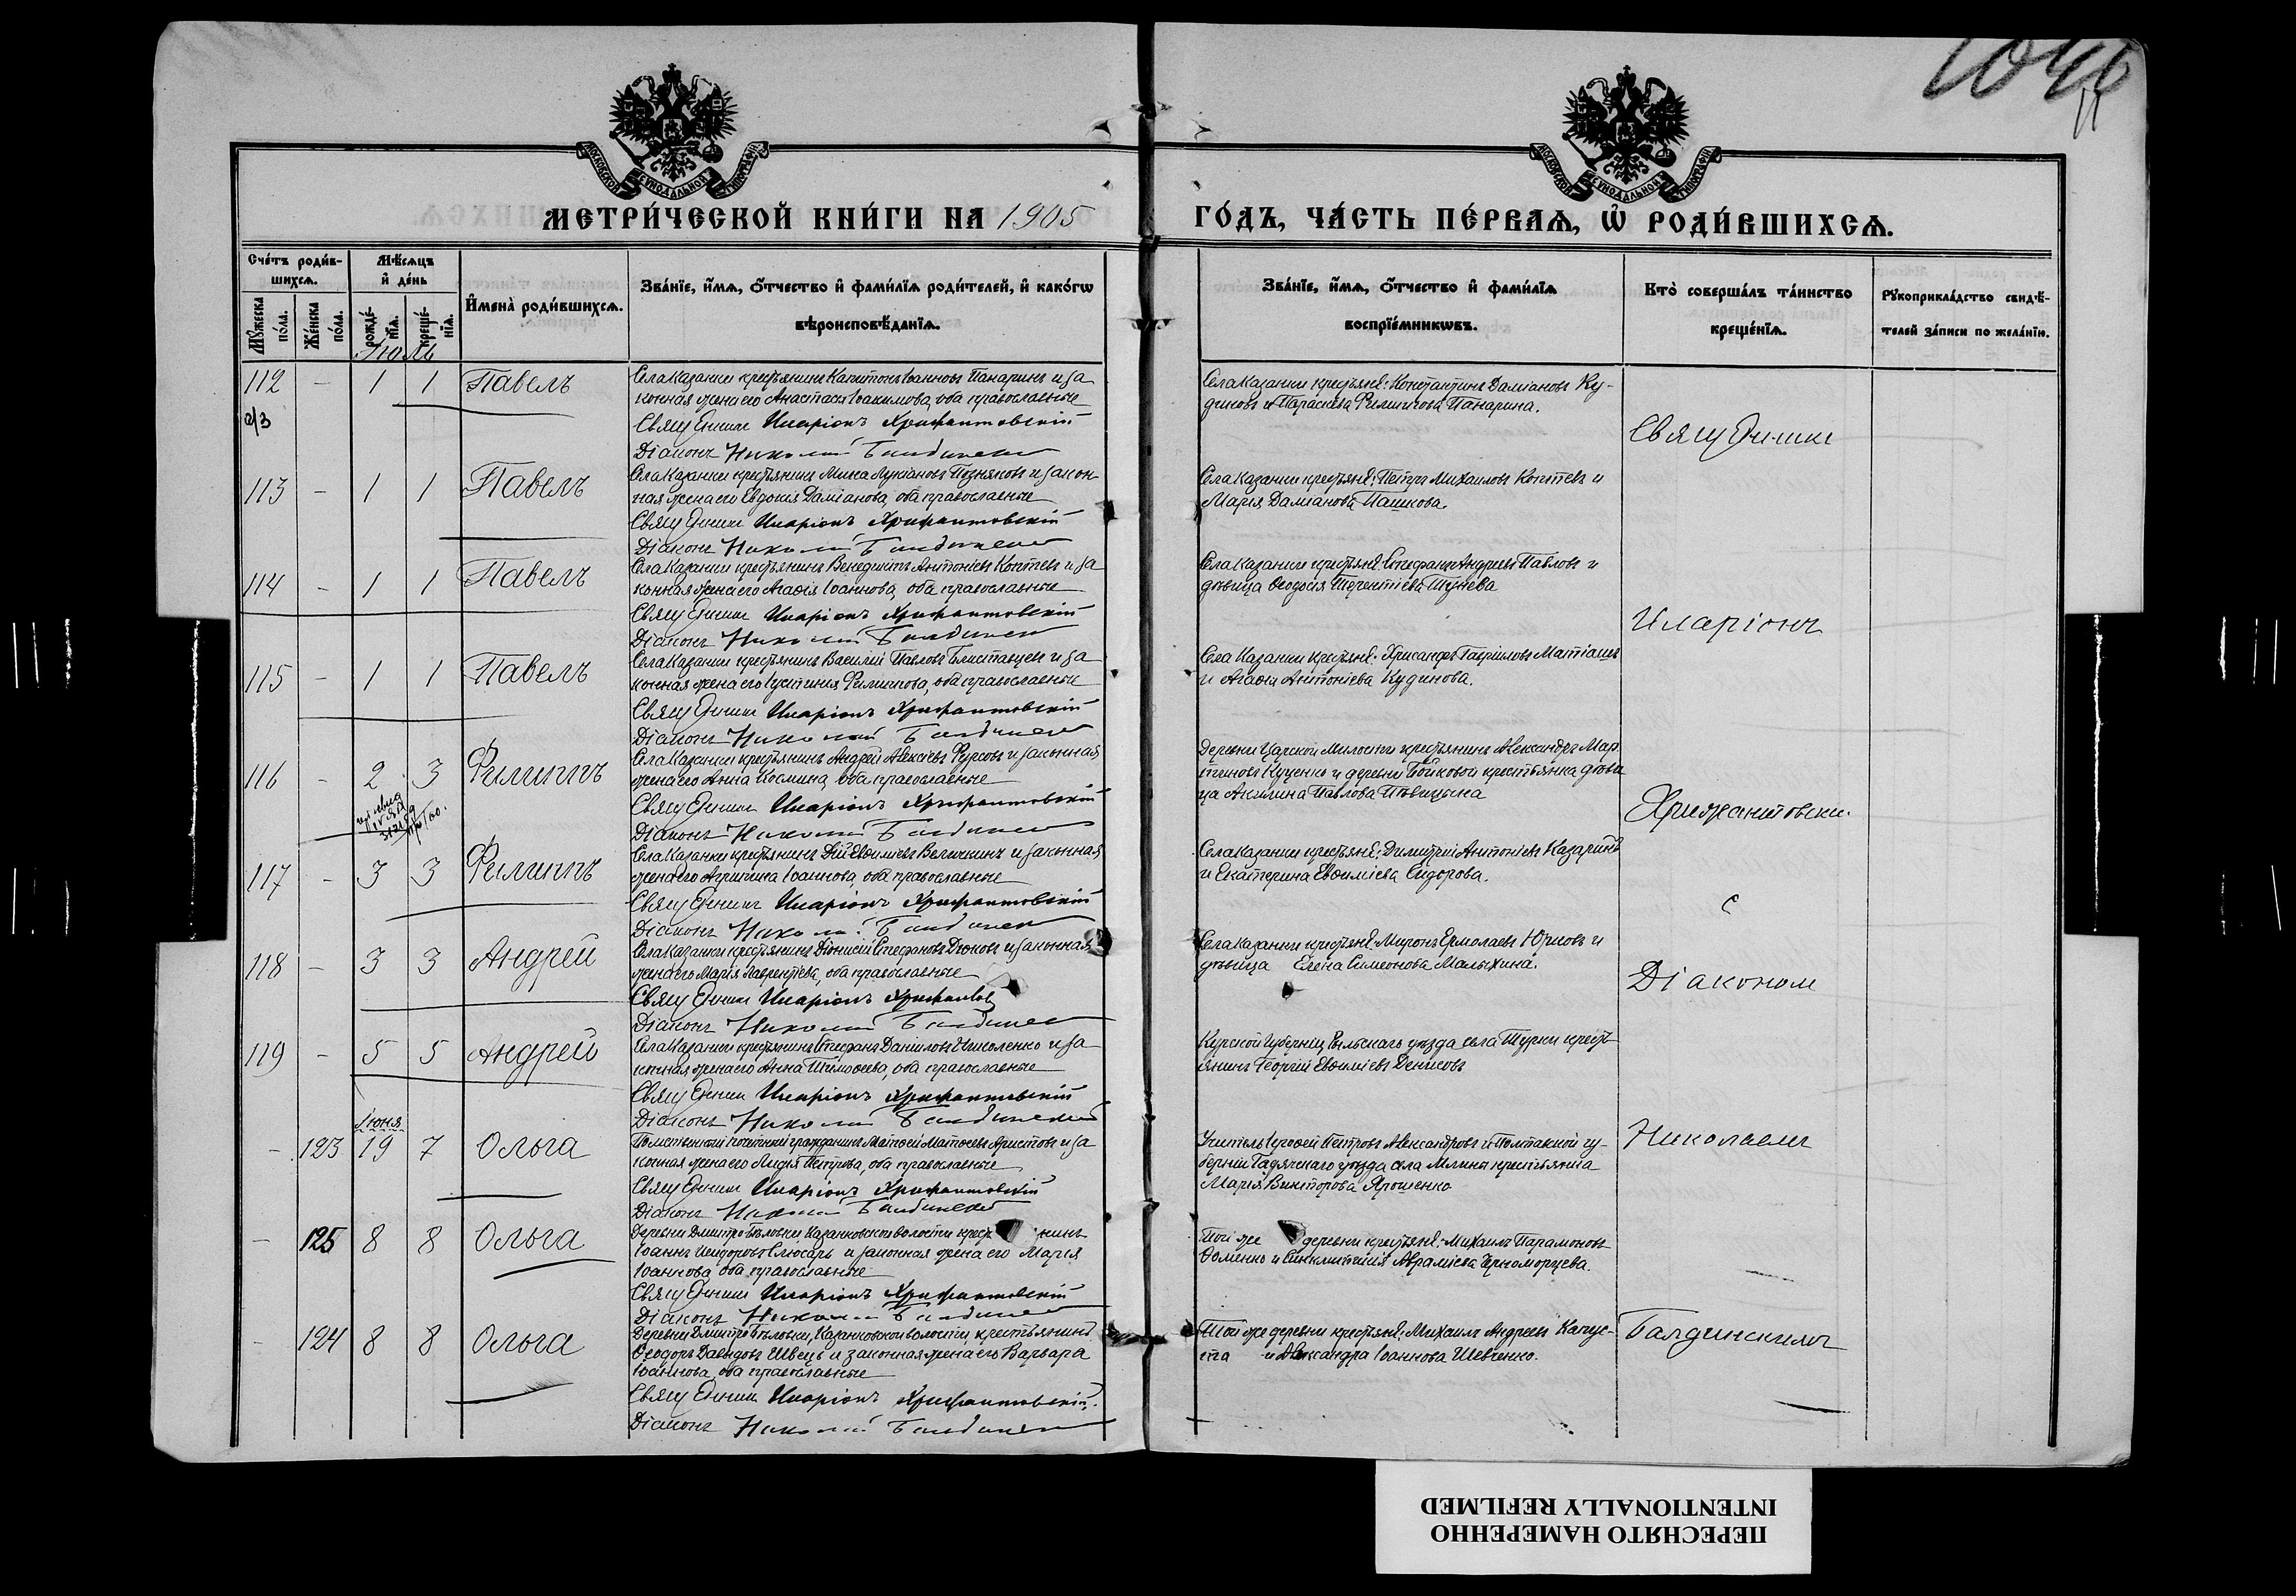 1046
11
МОСКОВСКОЙ СѴНОДАЛЬНОЙ ТИПОГРАФІИ
МОСКОВСКОЙ СѴНОДАЛЬНОЙ ТИПОГРАФІИ
МЕТРИ́ЧЕСКОЙ КНИ́ГИ НА 1905
ГО́ДЪ, ЧА́СТЬ ПЕ́РВАѦ, Ѡ҆ РОДИ́ВШИХСѦ.
Сче́тъ роди́в-
шихсѧ.
Мꙋ́жеска по́ла.
Же́нска по́ла.
Мѣ́сѧцъ
и҆ де́нь
рожде́нїѧ.
креще́нїѧ.
И҆мена̀ роди́вшихсѧ.
Зва́нїе, и҆́мѧ, ѻ҆́тчество и҆ фами́лїѧ роди́телей, и҆ како́гѡ
вѣроисповѣ́данїѧ.
Зва́нїе, и҆́мѧ, ѻ҆́тчество и҆ фами́лїѧ
воспрїе́мникѡвъ.
Кто̀ соверша́лъ та́инство
креще́нїѧ.
Рꙋкоприкла́дство свидѣ́-
телей за́писи по жела́нїю.
Іюль
112 - 1 1 Павелъ
Села Казанки крестьянинъ Капитонъ Іоанновъ Панаринъ и за
конная жена его Анастасія Іоакимова, оба православные
Священникъ Иларіонъ Хрисантовскій
Діаконъ Николай Балдинскій
Села Казанки крестьяне: Константинъ Даміановъ Ку-
диновъ и Параскева Филиппова Панарина.
113 - 1 1 Павелъ
Села Казанки крестьянинъ Мина Лукіановъ Позняковъ и закон-
ная жена его Евдокія Даміанова, оба православные
Священникъ Иларіонъ Хрисантовскій
Діаконъ Николай Балдинскій
Села Казанки крестьяне: Петръ Михаиловъ Коптевъ и
Марія Даміанова Пашкова.
114 - 1 1 Павелъ
Села Казанки крестьянинъ Венедиктъ Антоніевъ Коптевъ и за
конная жена его Агаѳія Іоаннова, оба православные
Священникъ Иларіонъ Хрисантовскій
Діаконъ Николай Балдинскій
Села Казанки крестьяне: Стефанъ Андреевъ Павловъ и
дѣвица Ѳеодосія Терентіева
115 - 1 1 Павелъ
Села Казанки крестьянинъ Василій Павловъ и за
конная жена его Іустинія Филиппова, оба православные
Священникъ Иларіонъ Хрисантовскій
Діаконъ Николай Балдинскій
Села Казанки крестьяне: Хрисанфъ Гавріиловъ Матіашъ
и Агаѳія Антоніева Кудинова.
116 - 2 3 Филиппъ
Села Казанки крестьянинъ Андрей Алексіевъ Фурсовъ и законная
жена его Анна Космина, оба православные
Священникъ Иларіонъ Хрисантовскій
Діаконъ Николай Балдинскій
Деревни Царской Милости крестьянинъ Александръ Мар
тиновъ Куценко и деревни Бойковой крестьянка дѣви
ца Акилина Павлова Пѣвицына
117 - 3 3 Филиппъ
Села Казанки крестьянинъ Дій Евѳиміевъ Величкинъ и законная
жена его Агрипина Іоаннова, оба православные
Священникъ Иларіонъ Хрисантовскій
Діаконъ Николай Балдинскій
Села Казанки крестьяне: Димитрій Антоніевъ Казаринъ
и Екатерина Евѳиміева Сидорова.
118 - 3 3 Андрей
Села Казанки крестьянинъ Діонисій Стефановъ Дюковъ и законная
жена его Марія Лаврентіева, оба православные
Священникъ Иларіонъ
Діаконъ Николай Балдинскій
Села Казанки крестьяне: Миронъ Ермолаевъ Юрковъ и
дѣвица Елена Симеонова Малыхина.
119 - 5 5 Андрей
Села Казанки крестьянинъ Стефанъ Даниловъ Николенко и за
конная жена его Анна Тимоѳеева, оба православные
Священникъ Иларіонъ Хрисантовскій
Діаконъ Николай Балдинскій
Курской губерніи Рыльскаго уѣзда села Турки кресть
янинъ Георгій Евѳиміевъ Денисовъ
Іюня
- 123 19 7 Ольга
Потомственный почетный гражданинъ Матѳей Матѳеевъ Аристовъ и за
конная жена его Лидія Петрова, оба православные
Священникъ Иларіонъ Хрисантовскій
Діаконъ Николай Балдинскій
Учитель Іероѳей Петровъ Александровъ и Полтавской гу-
берніи Гадячскаго уѣзда села Млины крестьянка
Марія Викторова Ярошенко
- 125 8 8 Ольга
Деревни Дмитро-Бѣловки Казанковской волости крест нинъ
Іоаннъ Исидоровъ Слюсарь и законная жена его Марія
Іоаннова, оба православные
Священникъ Иларіонъ Хрисантовскій
Діаконъ Николай Балдинскій
Той же деревни крестьяне: Михаилъ Парамоновъ
Ѳоменко и Синклитикія Авраміева Черноморцева.
- 124 8 8 Ольга
Деревни Дмитро-Бѣловки, Казанковской волости крестьянинъ
Ѳеодоръ Давидовъ Швецъ и законная жена его Варвара
Іоаннова, оба православные
Священникъ Иларіонъ Хрисантовскій
Діаконъ Николай Балдинскій
Той же деревни крестьяне: Михаилъ Андреевъ Капус-
та и Александра Іоаннова Шевченко.
Священникъ
Иларіонъ
Хрисантовскі
с
Діакономъ
Николаемъ
Балдинскимъ
ПЕРЕСНЯТО НАМЕРЕННО
INTENTIONALLY REFILMED